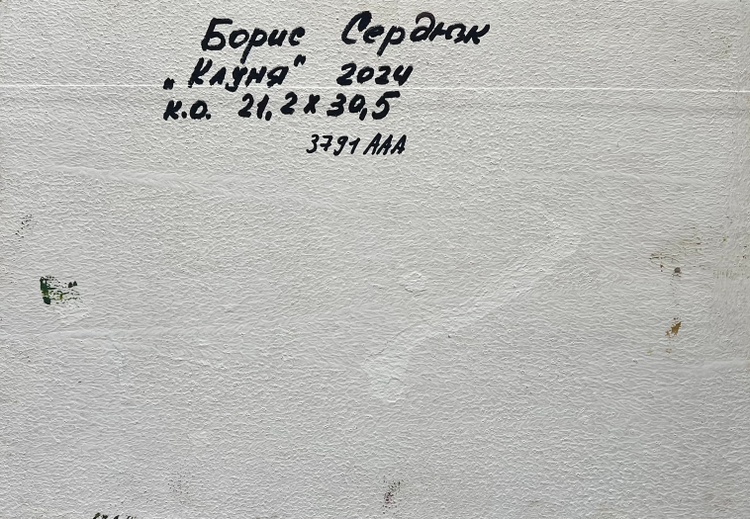 Борис Сердюк
„Клуня" 2024
к.о. 21,2х30,5
3791 ААА